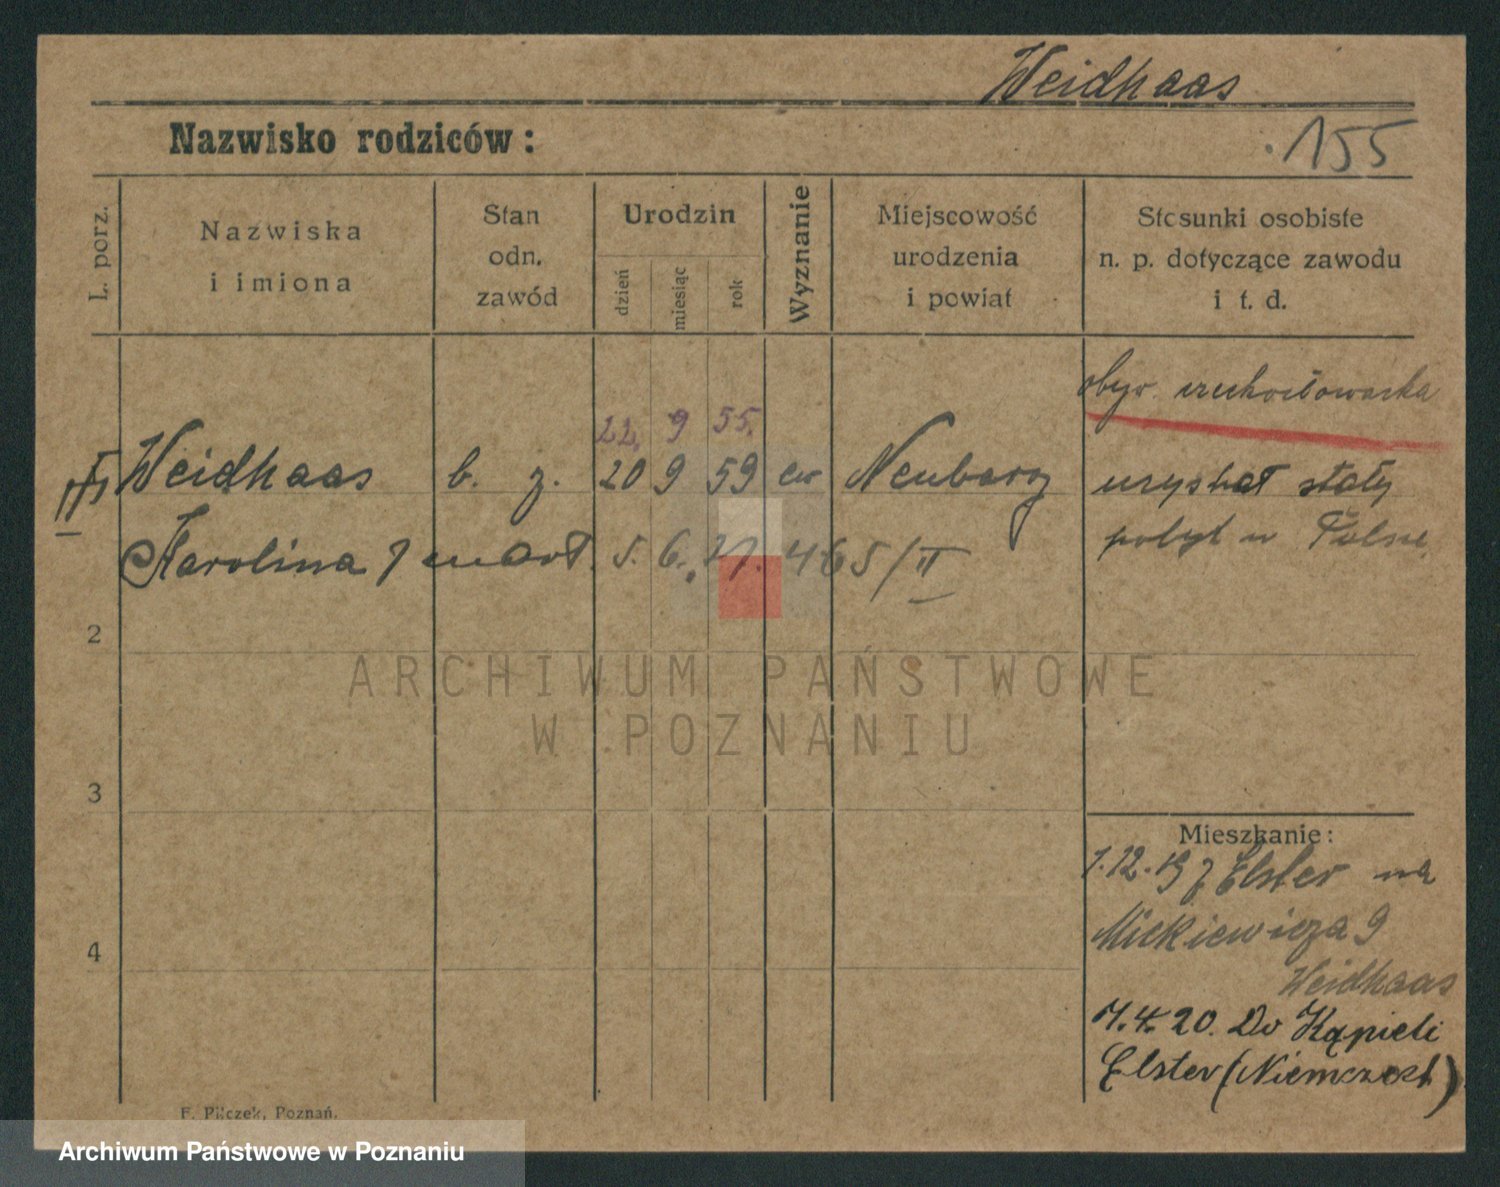 Weidhaas
Nazwisko rodziców:
155
L. porz.
Nazwiska
i imiona
Stan
odn.
zawód
Urodzin
dzień
miesiąc
rok
Wyznanie
Miejscowość
urodzenia
i powiat
Stosunki osobiste
n. p. dotyczące zawodu
i t. d.
obyw. czechosłowacka
22. 9 55.
Weidhaas b. z. 20 9 59 ew
uzyskał stały
Karolina
5. 6. 27. 465/II
pobyt w Polsce,
2
ARCHIWUM PAŃSTWOWE
W POZNANIU
3
Mieszkanie:
1.12.19 z Elster na
4
Mickiewicza 9
Weidhaas
7.4.20. Do Kąpieli
Elster (Niemczech)
F. Pilczek, Poznań.
Archiwum Państwowe w Poznaniu